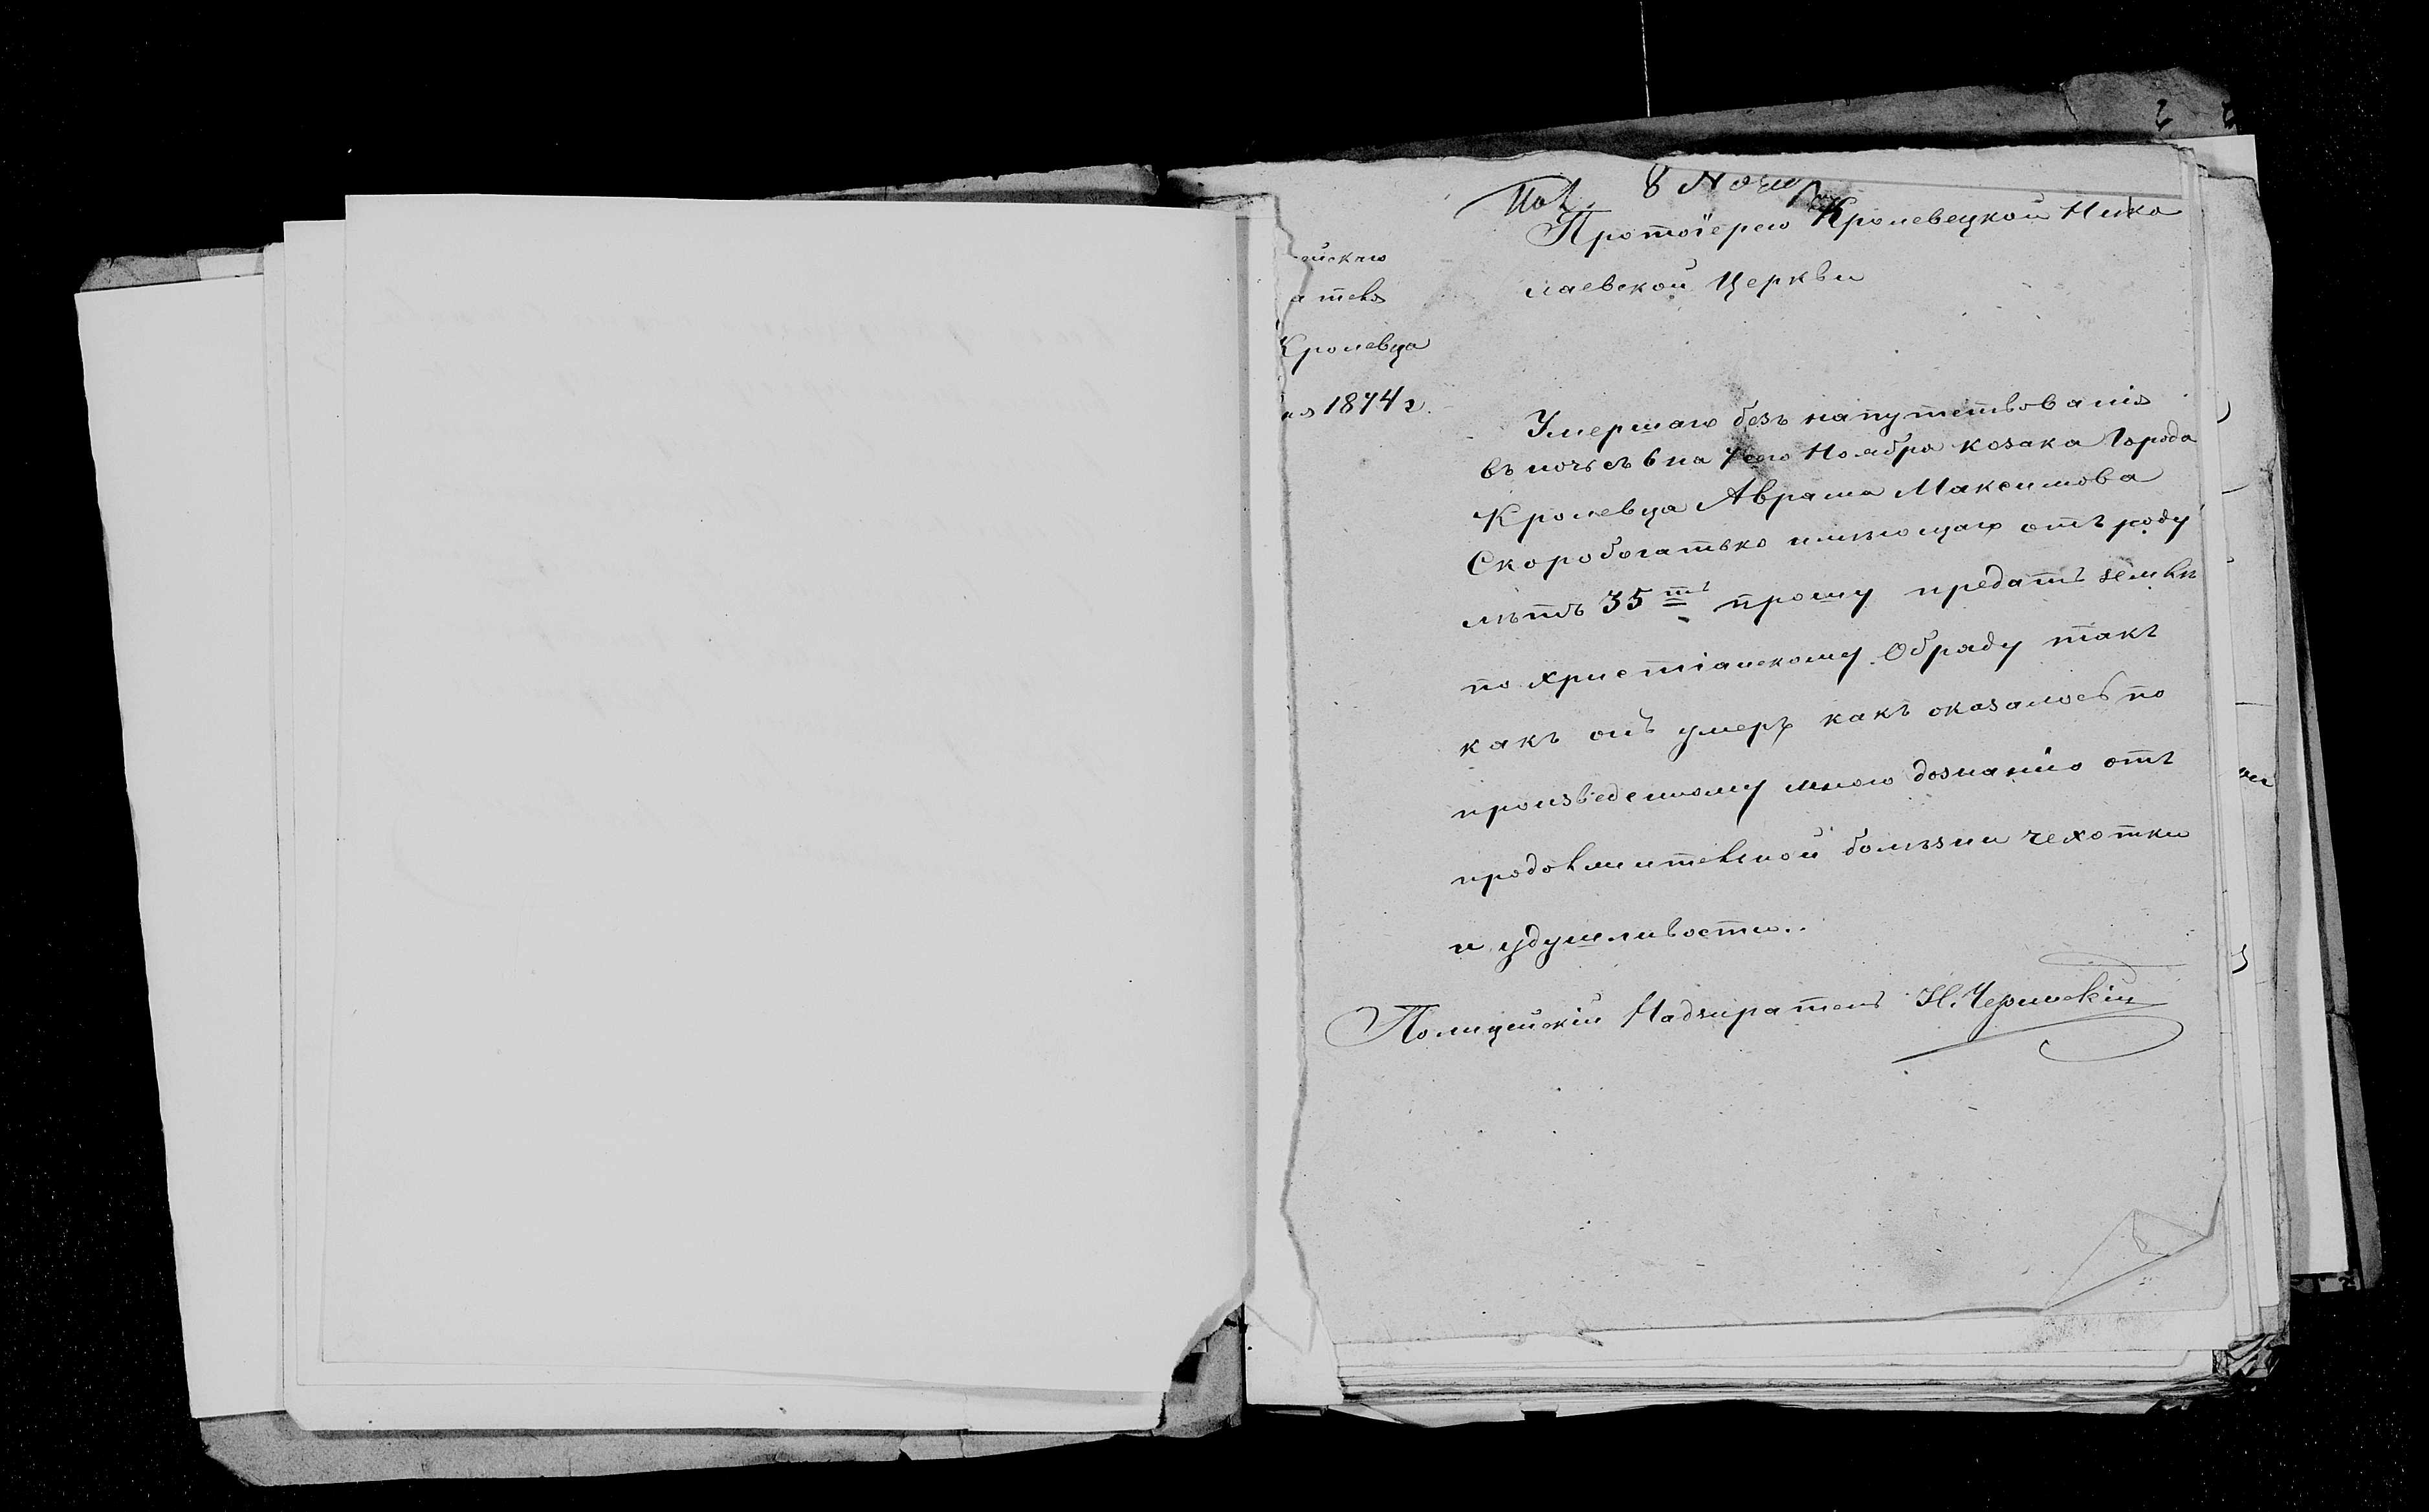 Пол. 8 Ноября
Протоіерею Кролевецкой Нико
лаевской Церкви
ейскаго
ателя
Кролевца
1874 г.
Умершаго безъ напутствованія
въ ночь съ 6 на 7 сего Ноября козака Города
Кролевца Аврама Максимова
Скоробогатько имѣющаго отъ роду
лѣтъ 35ть прошу предать землѣ
по христіанскому Обряду такъ
какъ онъ умеръ какъ оказалось по
произведенному мною дознанію отъ
продолжительной болѣзни чехотки
и удушливости.
Полицейскій Надзиратель Н.